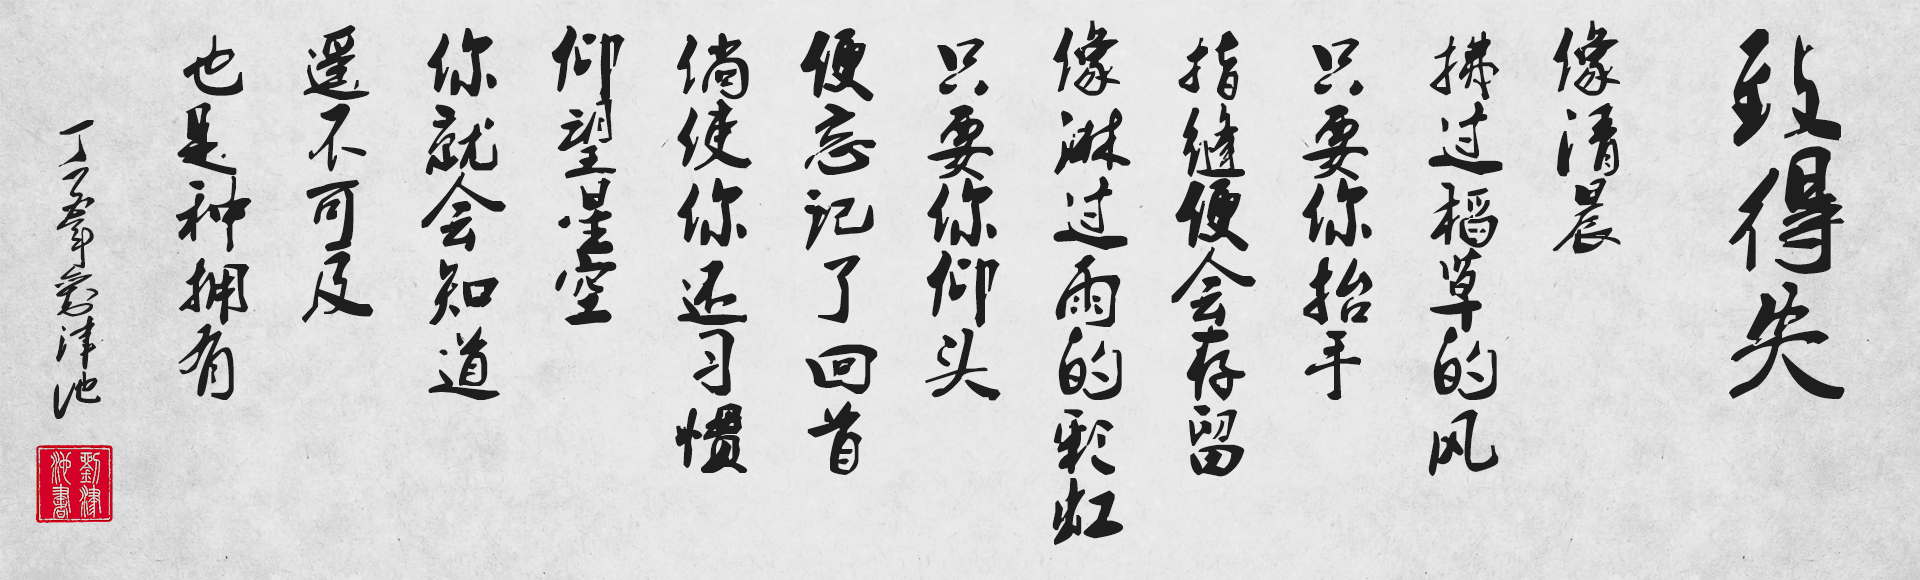 致得失
像清晨
拂过稻草的风
只要你抬手
指缝便会存留
像淋过雨的彩虹
只要你仰头
便忘记了回首
倘使你还习惯
仰望星空
你就会知道
遥不可及
也是种拥有
丁酉年 劉津池
劉津池書